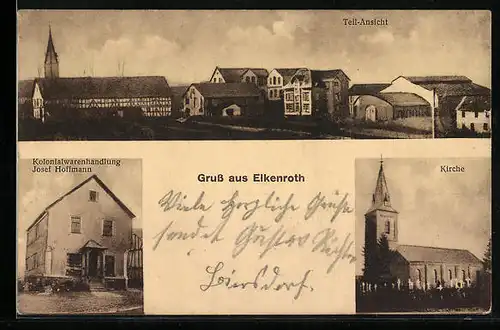 Teil-Ansicht
Kolonialwarenhandlung
Josef Hoffmann
Kirche
Gruß aus Elkenroth
Viele herzliche Grüße
sendet Gustav